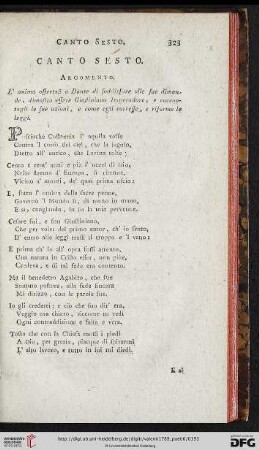 CANTO SESTO. 323
CANTO SESTO.
ARGOMENTO.
L' anima offertasi a Dante di soddisfare alle sue diman-
de, dimostra essere Giustiniano Imperadore, e raccon-
tagli le sue azioni, e come egli corresse, e riformò le
leggi.
Posciachè Costantin l' aquila volse
Contra 'l corso del ciel, che la seguio,
Dietro all' antico, che Lavina tolse;
Cento e cent' anni e più l' uccel di Dio
Nello stremo d' Europa, si ritenne,
Vicino a' monti, de' quai prima uscìo:
E, sotto l' ombra delle sacre penne,
Governò 'l Mondo lì, di mano in mano,
E sì, cangiando, in su la mia pervenne.
Cesare fui, e son Giustiniano,
Che per voler del primo amor, ch' io sento,
D' entro alle leggi trassi il troppo e 'l vano:
E prima ch' io all' opra fossi attento,
Una natura in Cristo esser, non piùe,
Credeva, e di tal fede era contento.
Ma il benedetto Agabito, che fue
Sommo pastore, alla fede sincera
Mi dirizzò, con le parole sue.
Io gli credetti: e ciò che suo dir' era,
Veggio ora chiaro, siccome tu vedi
Ogni contraddizione e falsa e vera.
Tosto che con la Chiesa mossi i piedi
A Dio, per grazia, piacque di spirarmi
L' alto lavoro, e tutto in lui mi diedi.
E al
http://digi.ub.uni-heidelberg.de/diglit/
UNIVERSITÄTS-
BIBLIOTHEK
HEIDELBERG
gefördert durch die
DFG